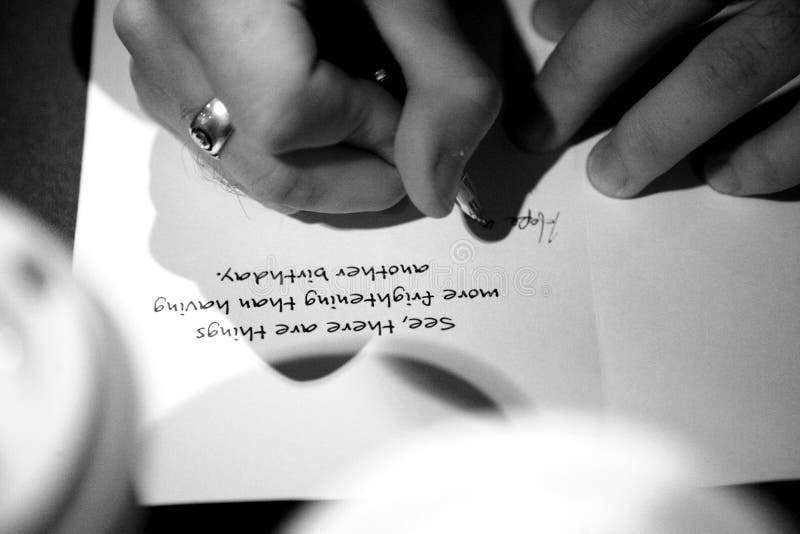 See, there are things
more frightening than having
another birthday.
Hope